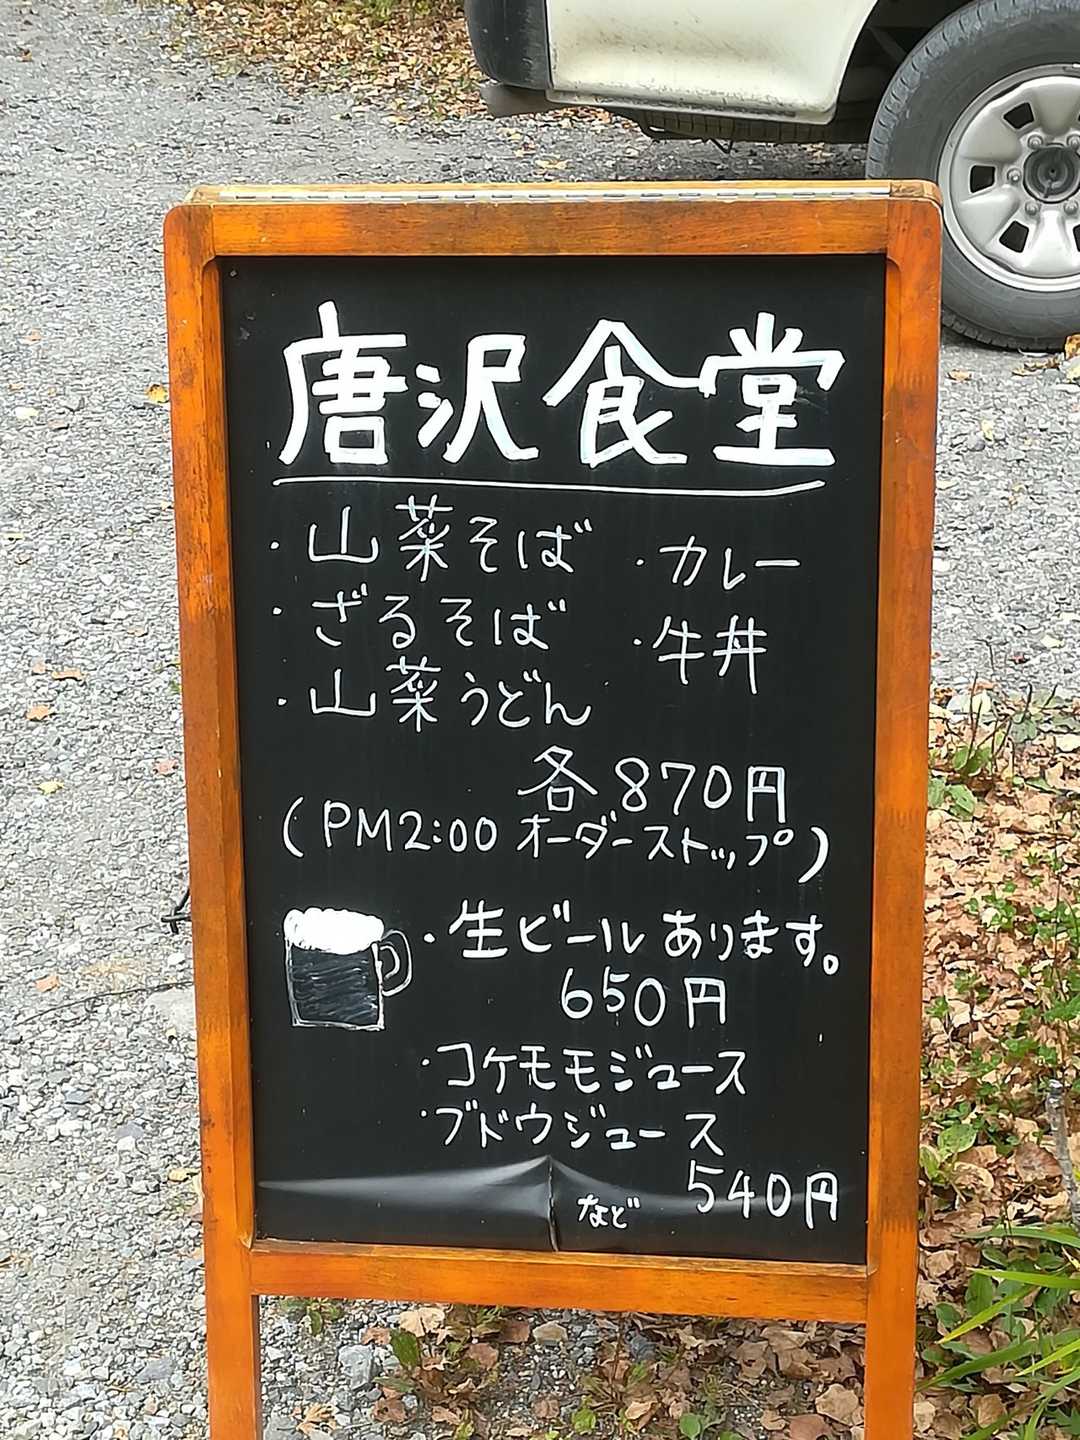 唐沢食堂
・山菜そば ・カレー
・ざるそば ・牛丼
・山菜うどん
各870円
(PM2:00 オーダーストップ)
・生ビールあります。
650円
・コケモモジュース
・ブドウジュース
など 540円